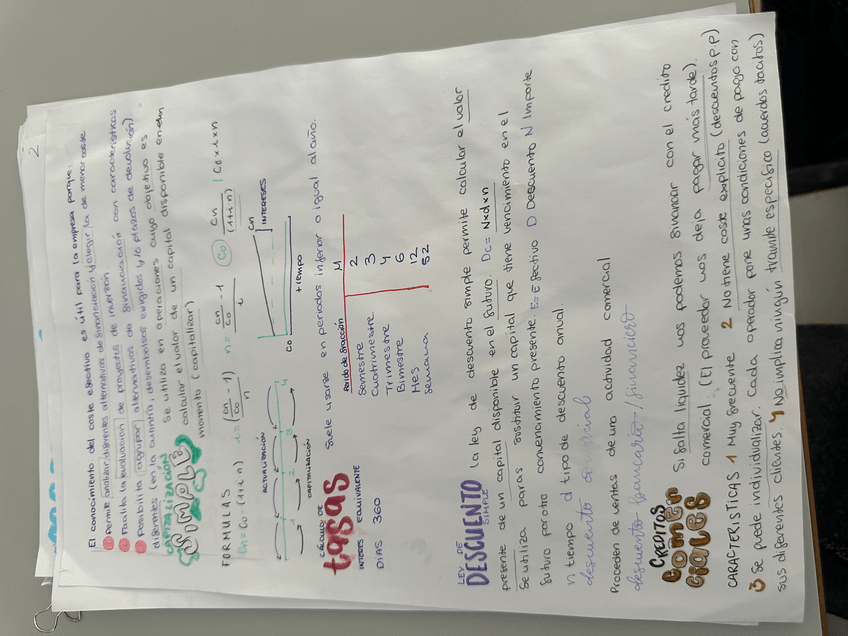 2
El conocimiento del coste efectivo es útil para la empresa porque:
Permite analizar diferentes alternativas de financiación y elegir la de menor coste
Facilita la evaluación de proyectos de inversión.
Posibilita agrupar alternativas de financiación con características
diferentes (en la cuantía, desembolsos exigidos y/o plazos de devolución).
CAPITALIZACIÓN
SIMPLE
Se utiliza en operaciones cuyo objetivo es
calcular el valor de un capital disponible en un
momento (capitalizar)
FORMULAS
Cn = Co (1+i·n) i = (Cn/Co - 1)/n n = (Cn/Co - 1)/i Co Cn/(1+i·n) I Co x i x n
ACTUALIZACIÓN
1 2 3 4
CAPITALIZACIÓN
Co Cn ] INTERESES
tiempo
CÁLCULO DE
tasas
Suele usarse en periodos inferior o igual al año.
INTERES EQUIVALENTE
DIAS 360
Periodo de fracción M
Semestre 2
Cuatrimestre 3
Trimestre 4
Bimestre 6
Mes 12
Semana 52
LEY DE
DESCUENTO
SIMPLE
La ley de descuento simple permite calcular el valor
presente de un capital disponible en el futuro. Dc = N x d x n
Se utiliza paras sustituir un capital que tiene vencimiento en el
futuro por otro con vencimiento presente. E = Efectivo D Descuento N Importe
n tiempo d tipo de descuento anual.
descuento comercial
Proceden de ventas de una actividad comercial
descuento bancario / financiero
CREDITOS
COMERCIALES
Si falta liquidez nos podemos financiar con el credito
comercial. (El proveedor nos deja pagar más tarde).
CARACTERISTICAS 1 Muy frecuente 2 No tiene coste explicito (descuentos P.P)
3 Se puede individualizar. Cada operador pone unas condiciones de pago con
sus diferentes clientes. 4 No implica ningún tramite especifico (acuerdos tacitos)